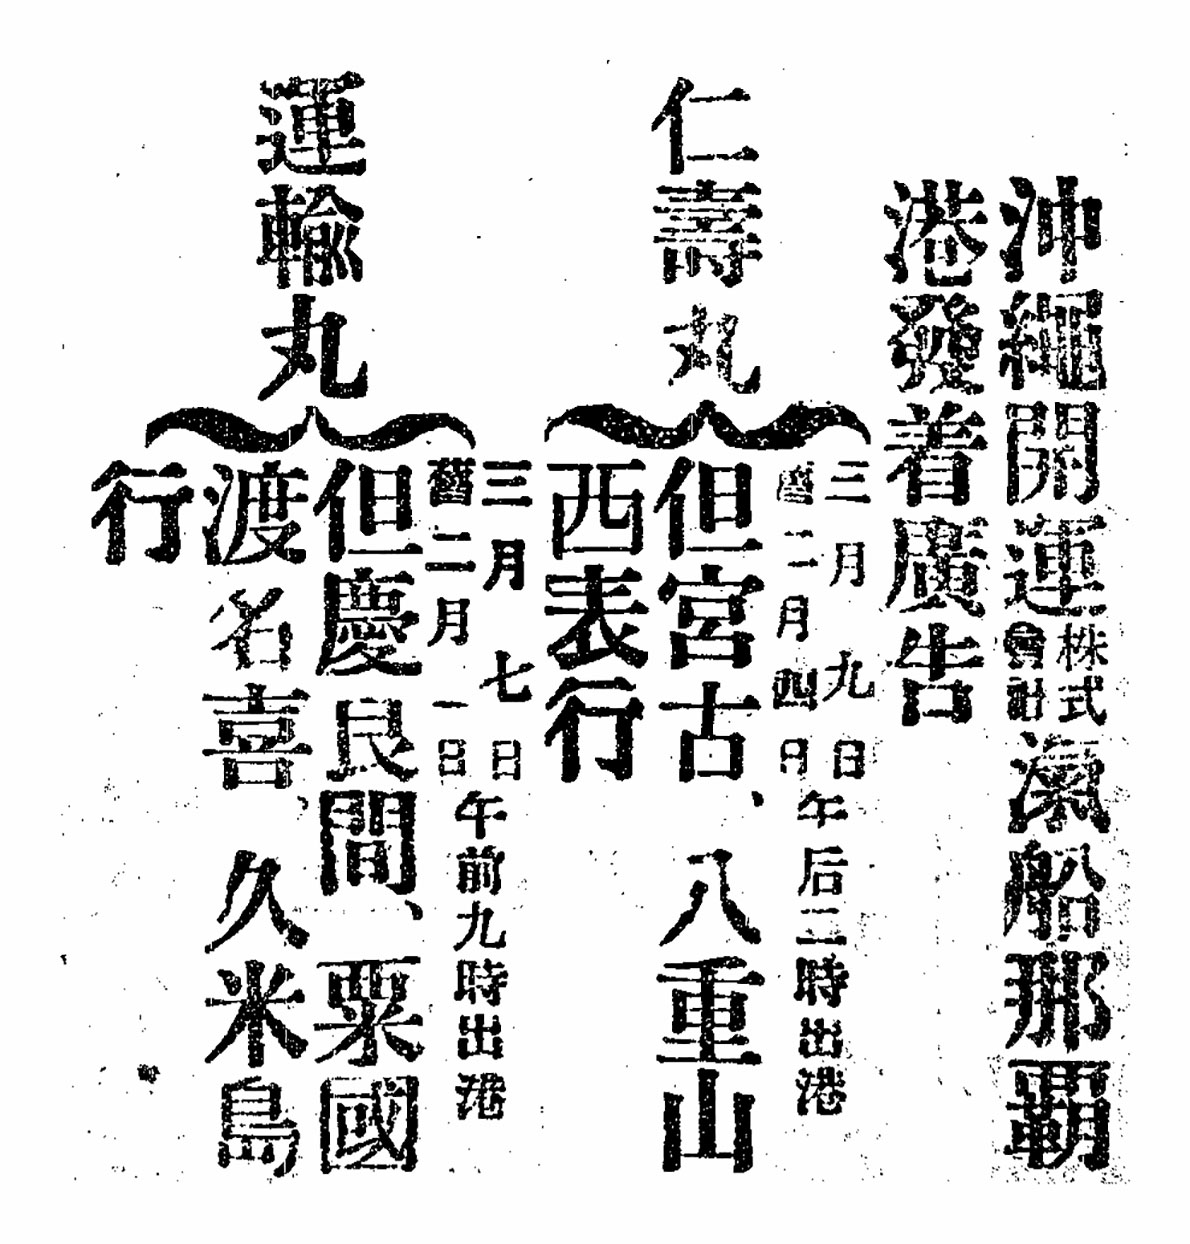 沖繩開運株式會社滊船那覇
港發着廣告
仁壽丸
三月九日
舊二月四日
午后二時出港
但宮古、八重山
西表行
運輸丸
三月七日
舊二月一日
午前九時出港
但慶良間、粟國
渡名喜、久米島
行